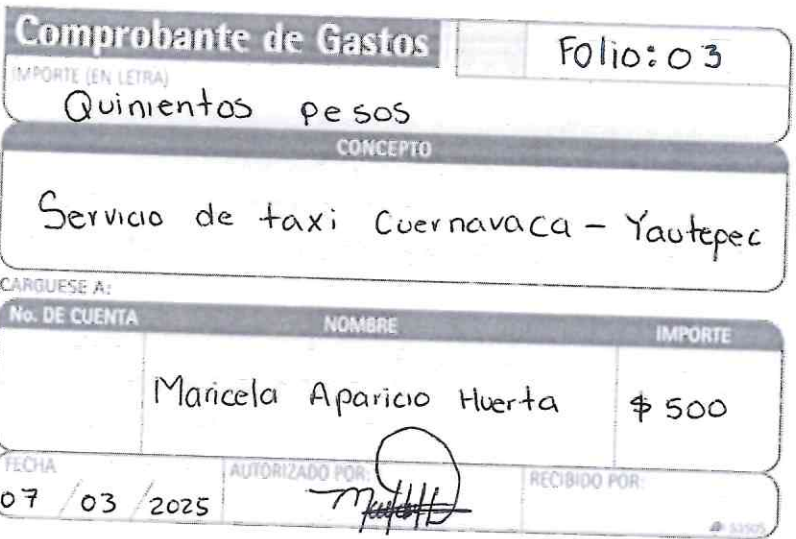 Comprobante de Gastos
Folio: 03
IMPORTE (EN LETRA)
Quinientos pesos
CONCEPTO
Servicio de taxi Cuernavaca - Yautepec
CARGUESE A:
No. DE CUENTA NOMBRE IMPORTE
Maricela Aparicio Huerta $ 500
FECHA AUTORIZADO POR: RECIBIDO POR:
07 / 03 / 2025